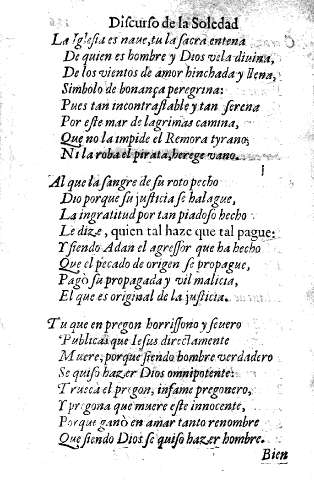 Discurso de la Soledad
La Iglesia es naue, tu la sacra entena
De quien es hombre y Dios vela diuina,
De los vientos de amor hinchada y llena,
Simbolo de bonança peregrina:
Pues tan incontrastable y tan serena
Por este mar de lagrimas camina,
Que no la impide el Remora tyrano,
Ni la roba el pirata, herege vano.
Al que la sangre de su roto pecho
Dio porque su justicia se halague,
La ingratitud por tan piadoso hecho
Le dize, quien tal haze que tal pague:
Y siendo Adan el agressor que ha hecho
Que el pecado de origen se propague,
Pagò su propagada y vil malicia,
El que es original de la justicia.
Tu que en pregon horrissono y seuero
Publicas que Iesus direclamente
Muere, porque siendo hombre verdadero
Se quiso hazer Dios omnipotente:
Trueca el pregon, infame pregonero,
Y pregona que muere este innocente,
Porque ganò en amar tanto renombre
Que siendo Dios se quiso hazer hombre.
Bien